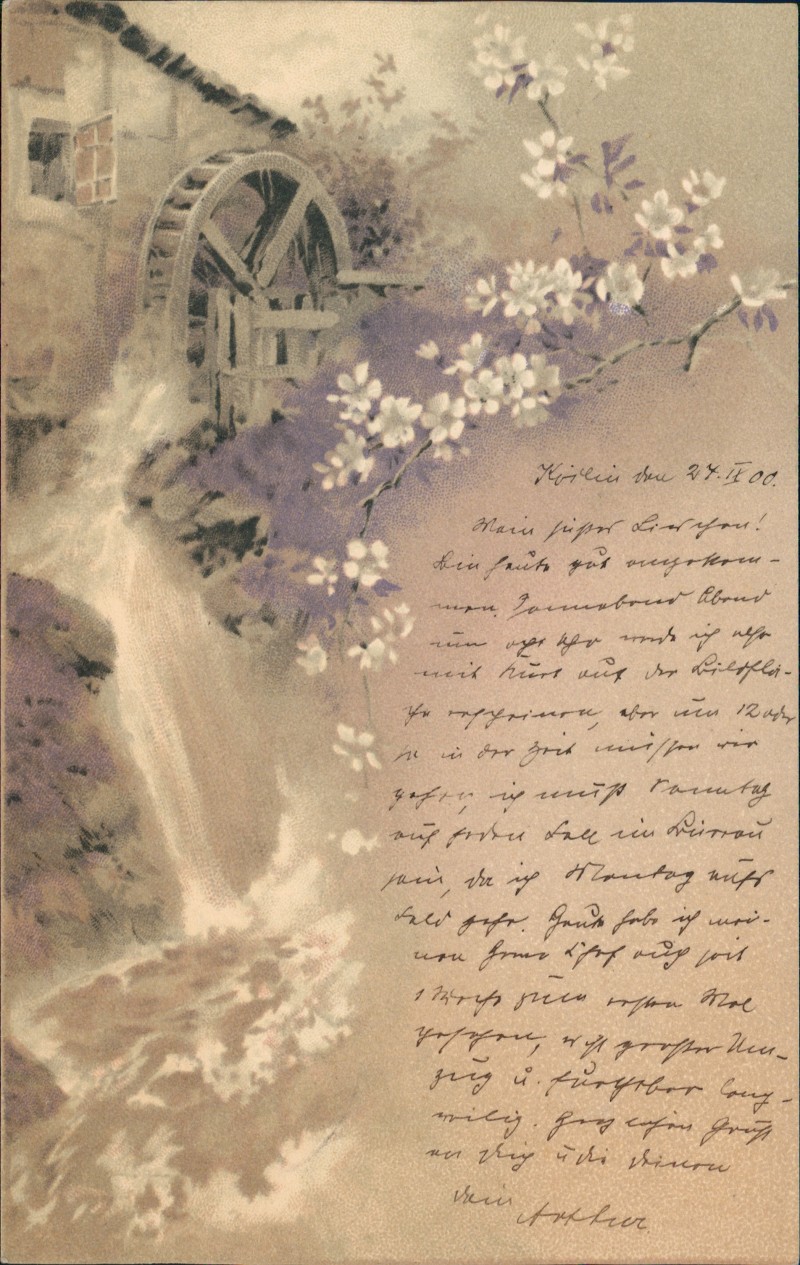 Köslin den 27. IX 00.
Mein süßes Lieschen!
Bin heute gut angekom-
men. Sonnabend Abend
um acht Uhr werde ich also
mit Kurt auf der Bildflä-
che erscheinen, aber um 12 oder
so in der Zeit müssen wir
gehen, ich muß Sonntag
auf jeden Fall im Bürrau
sein, da ich Montag aufs
Feld gehe. Heute habe ich mei-
nen Herrn Chef auch seit
1 Woche zum ersten Mal
gesehen, ist großer Um-
zug u. furchtbar lang-
weilig. Herzlichen Gruß
an Dich u die Deinen
Dein
Arthur